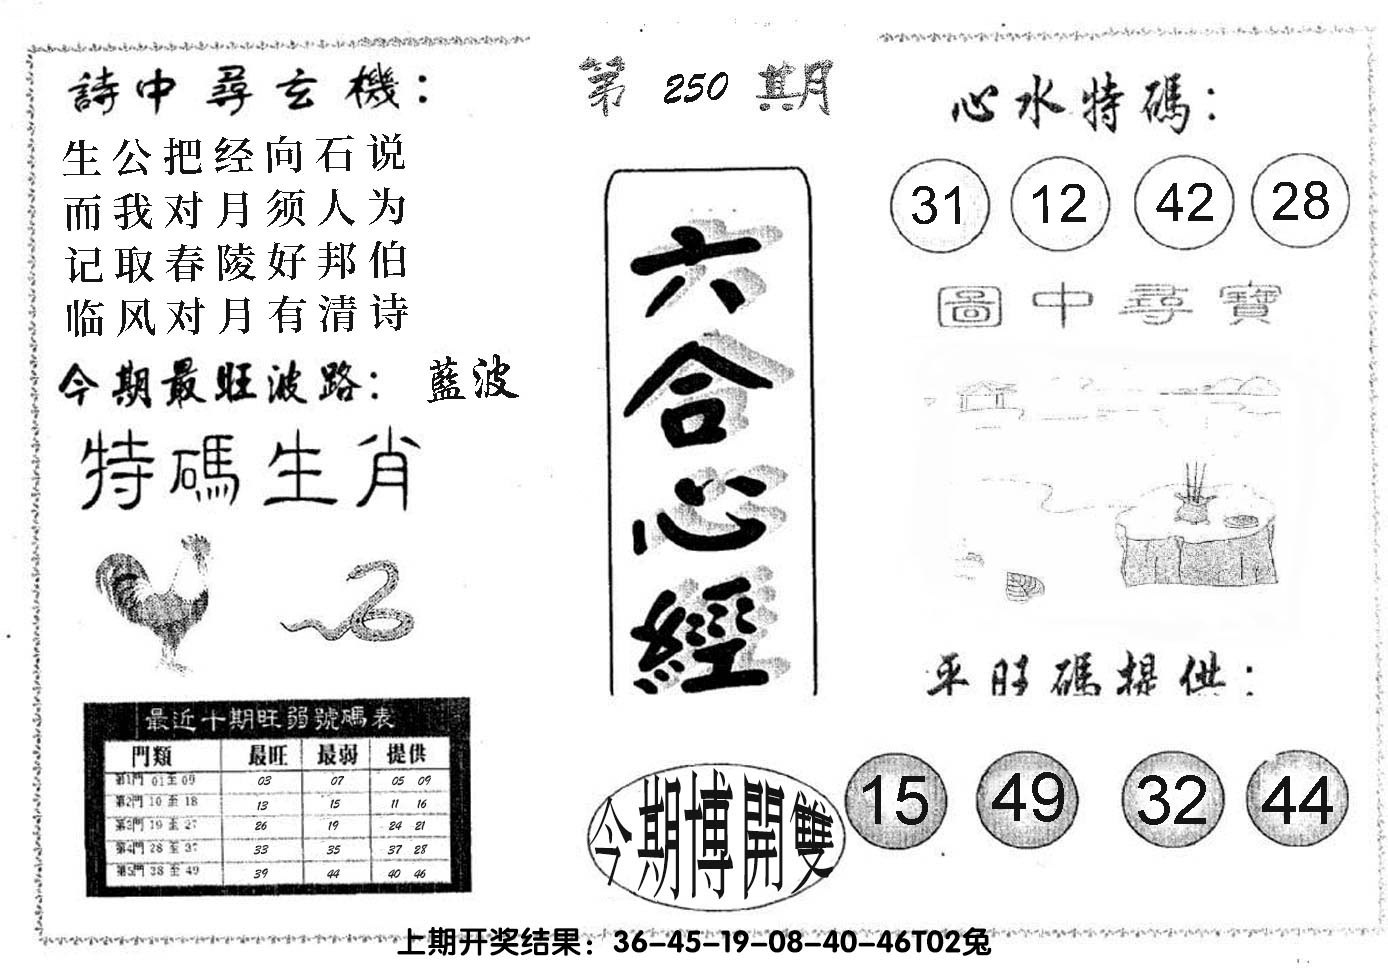 詩中尋玄機：
生公把经向石说
而我对月须人为
记取春陵好邦伯
临风对月有清诗
今期最旺波路：藍波
特碼生肖
最近十期旺弱號碼表
門類 最旺 最弱 提供
第1門 01至09 03 07 05 09
第2門 10至18 13 15 11 16
第3門 19至27 26 19 24 21
第4門 28至37 33 35 37 28
第5門 38至49 39 44 40 46
第250期
六合心經
今期博開雙
心水特碼：
31 12 42 28
圖中尋寶
平旺碼提供：
15 49 32 44
上期开奖结果：36-45-19-08-40-46T02兔